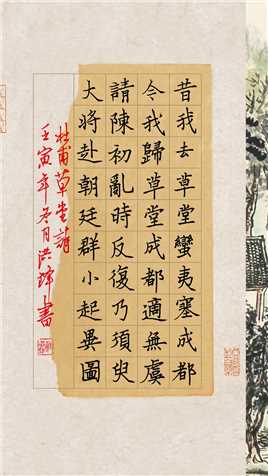 昔我去草堂蠻夷塞成都
今我歸草堂成都適無虞
請陳初亂時反復乃須臾
大将赴朝廷群小起異圖
杜甫草堂詩
壬寅年冬月洪鐸書